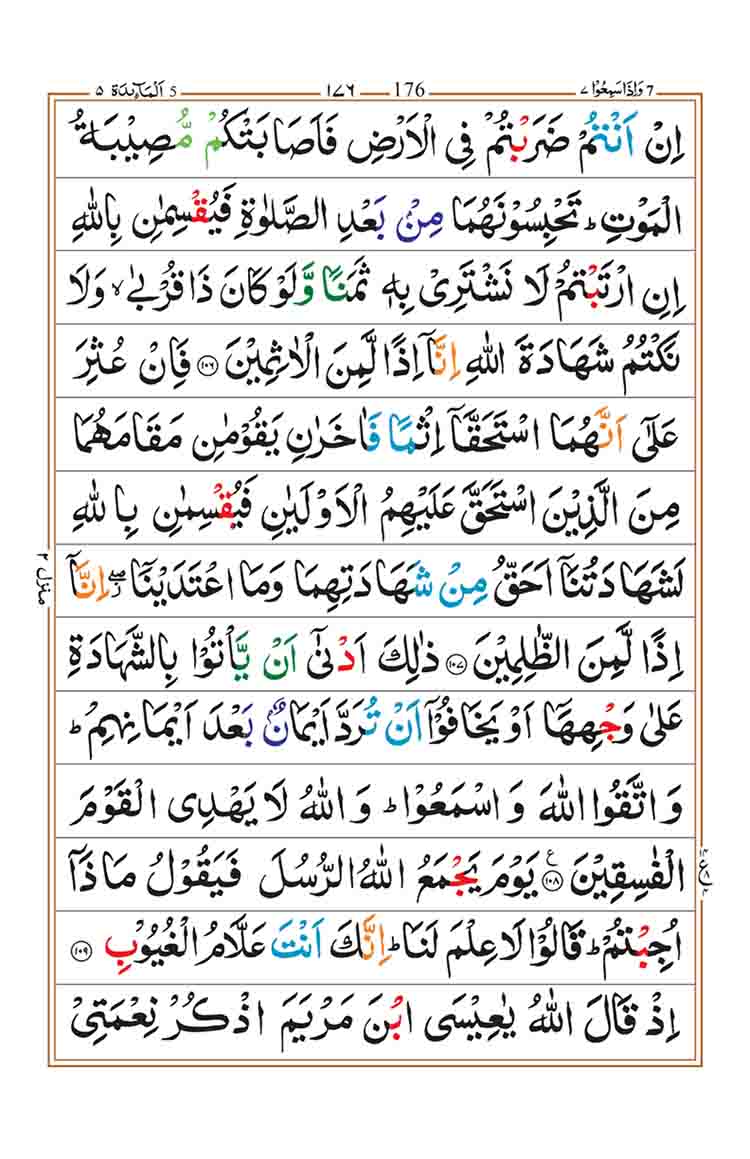 7 وَاِذَا سَمِعُوْا ٧ — 176 — ١٧٦ — 5 اَلْمَآئِدَة ٥
اِنْ اَنْتُمْ ضَرَبْتُمْ فِی الْاَرْضِ فَاَصَابَتْكُمْ مُّصِیْبَةُ
الْمَوْتِ ؕ تَحْبِسُوْنَهُمَا مِنْۢ بَعْدِ الصَّلٰوةِ فَیُقْسِمٰنِ بِاللّٰهِ
اِنِ ارْتَبْتُمْ لَا نَشْتَرِیْ بِهٖ ثَمَنًا وَّلَوْ كَانَ ذَا قُرْبٰی ۙ وَلَا
نَكْتُمُ شَهَادَةَ اللّٰهِ اِنَّاۤ اِذًا لَّمِنَ الْاٰثِمِیْنَ ۝۱۰۶ فَاِنْ عُثِرَ
عَلٰۤی اَنَّهُمَا اسْتَحَقَّاۤ اِثْمًا فَاٰخَرٰنِ یَقُوْمٰنِ مَقَامَهُمَا
مِنَ الَّذِیْنَ اسْتَحَقَّ عَلَیْهِمُ الْاَوْلَیٰنِ فَیُقْسِمٰنِ بِاللّٰهِ
لَشَهَادَتُنَاۤ اَحَقُّ مِنْ شَهَادَتِهِمَا وَمَا اعْتَدَیْنَاۤ ۖؗ اِنَّاۤ
منزل ٢
اِذًا لَّمِنَ الظّٰلِمِیْنَ ۝۱۰۷ ذٰلِكَ اَدْنٰۤی اَنْ یَّاْتُوْا بِالشَّهَادَةِ
عَلٰی وَجْهِهَاۤ اَوْ یَخَافُوْۤا اَنْ تُرَدَّ اَیْمَانٌۢ بَعْدَ اَیْمَانِهِمْ ؕ
وَاتَّقُوا اللّٰهَ وَاسْمَعُوْا ؕ وَاللّٰهُ لَا یَهْدِی الْقَوْمَ
الْفٰسِقِیْنَ ۝۱۰۸ ع یَوْمَ یَجْمَعُ اللّٰهُ الرُّسُلَ فَیَقُوْلُ مَاذَاۤ
اُجِبْتُمْ ؕ قَالُوْا لَا عِلْمَ لَنَا ؕ اِنَّكَ اَنْتَ عَلَّامُ الْغُیُوْبِ ۝۱۰۹
اِذْ قَالَ اللّٰهُ یٰعِیْسَی ابْنَ مَرْیَمَ اذْكُرْ نِعْمَتِیْ